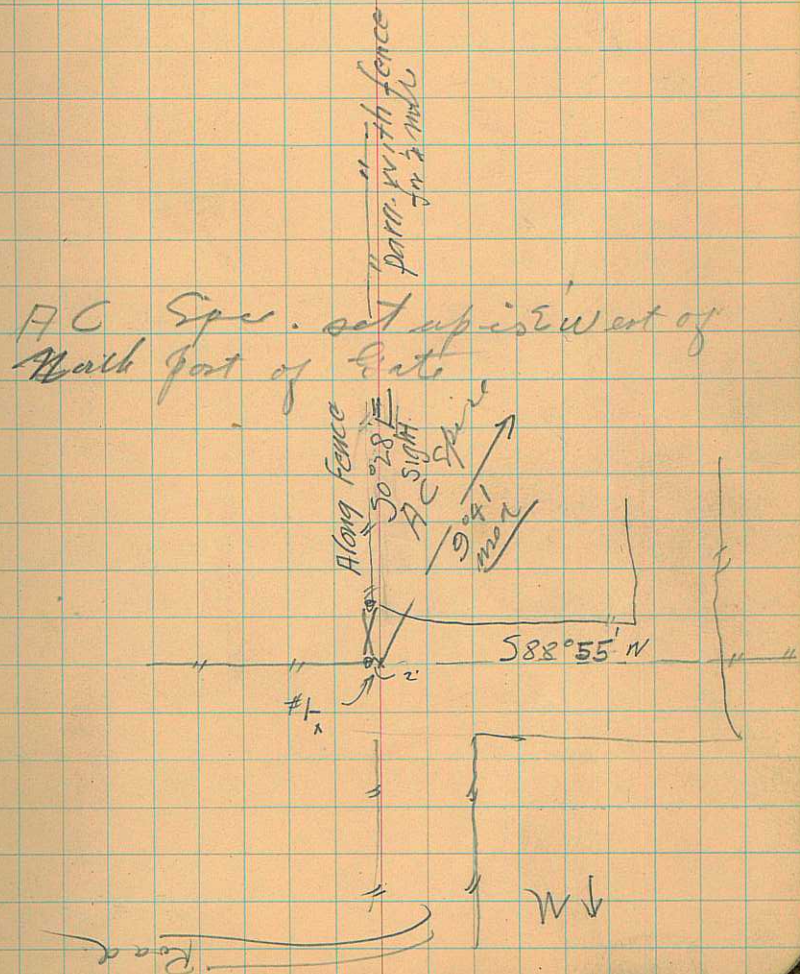 parr. with fence
for ½ mile
AC Spir. set up is 2' West of
North post of Gate
Along Fence
S0°28'E
Sight
AC Spire
9°41'
mor
S88°55'W
2.
#1
N
Road